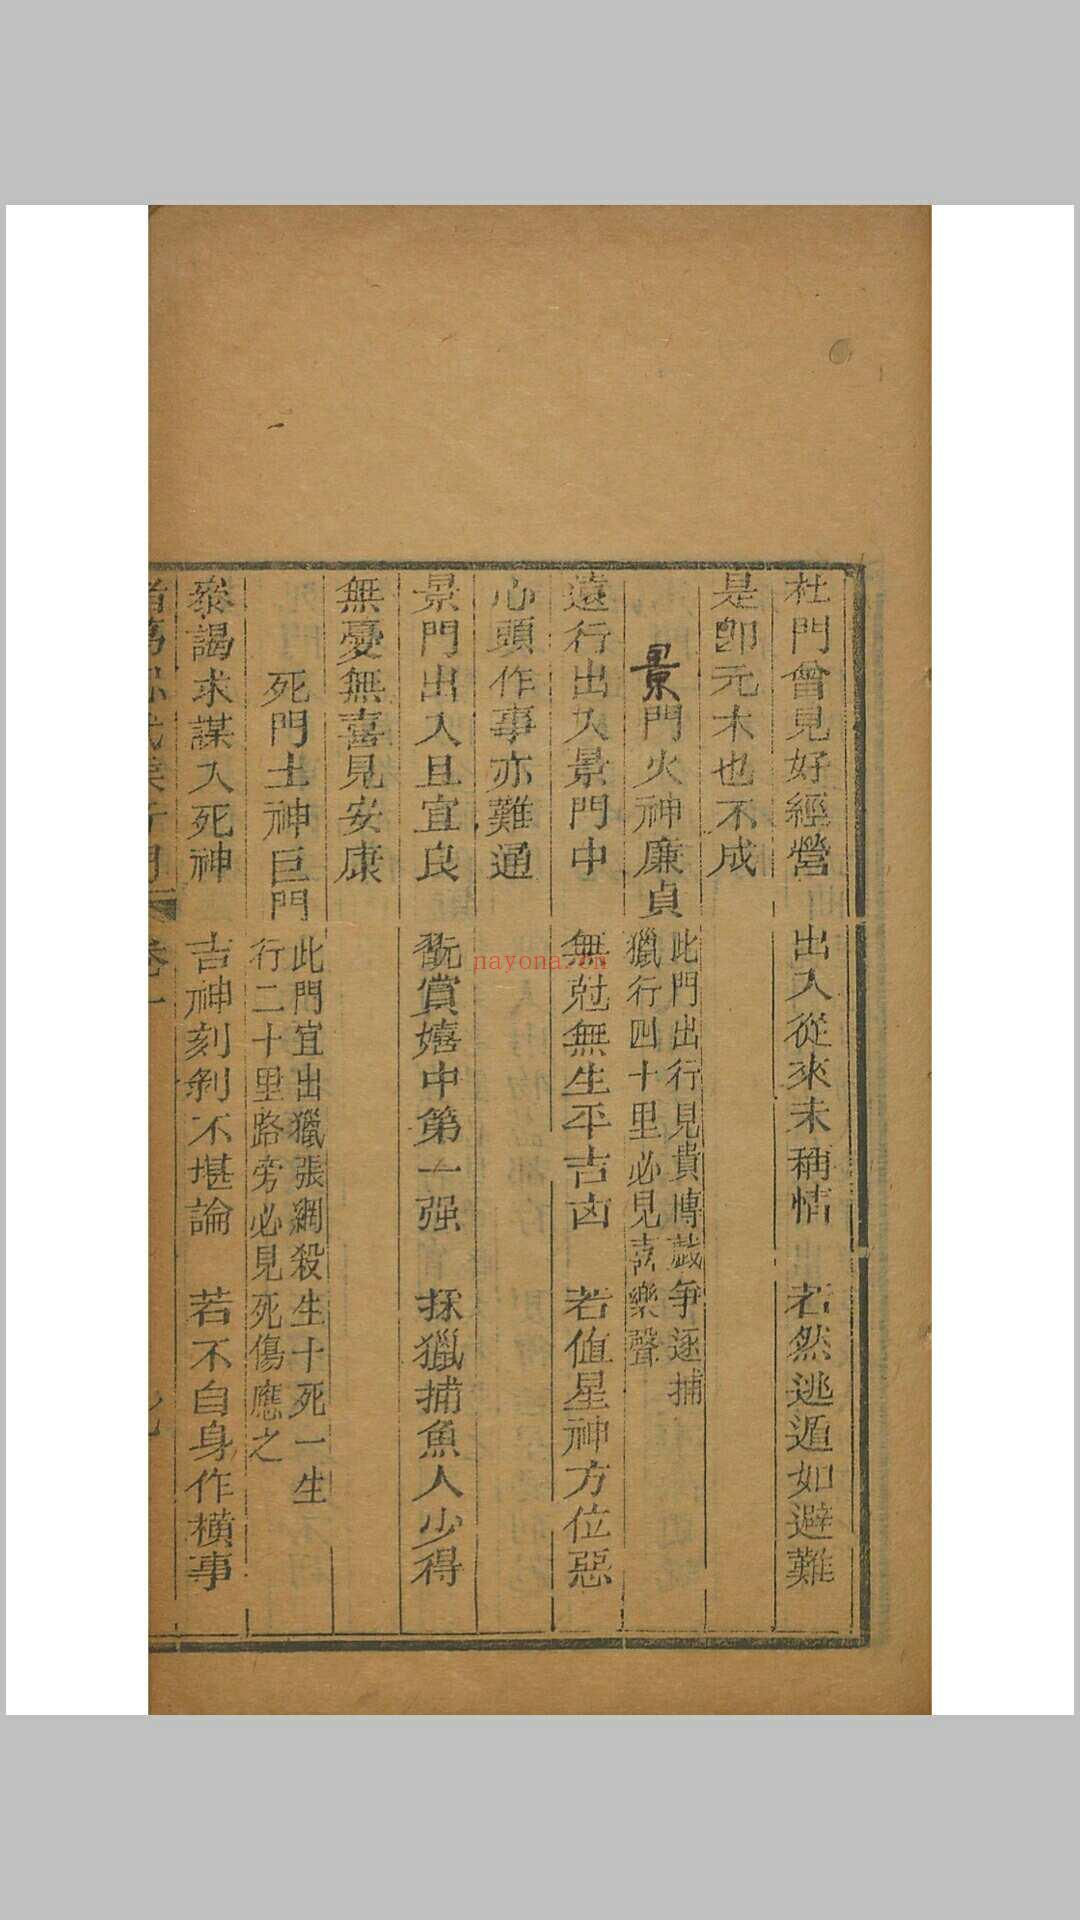 杜門曾見好經營 出入從來未稱情 若然逃遁如避難
是卽元木也不成
景門火神廉貞 此門出行見貴博戯争逐捕
獵行四十里必見喜樂聲
遠行出入景門中 無尅無生平吉凶 若値星神方位惡
心頭作事亦難通
景門出入且宜良 翫賞嬉中第一强 採獵捕魚人少得
無憂無喜見安康
死門土神巨門 此門宜出獵張網殺生十死一生
行二十里路旁必見死傷應之
叅謁求謀入死神 吉神刻剝不堪論 若不自身作橫事
卷一
nayona.cn